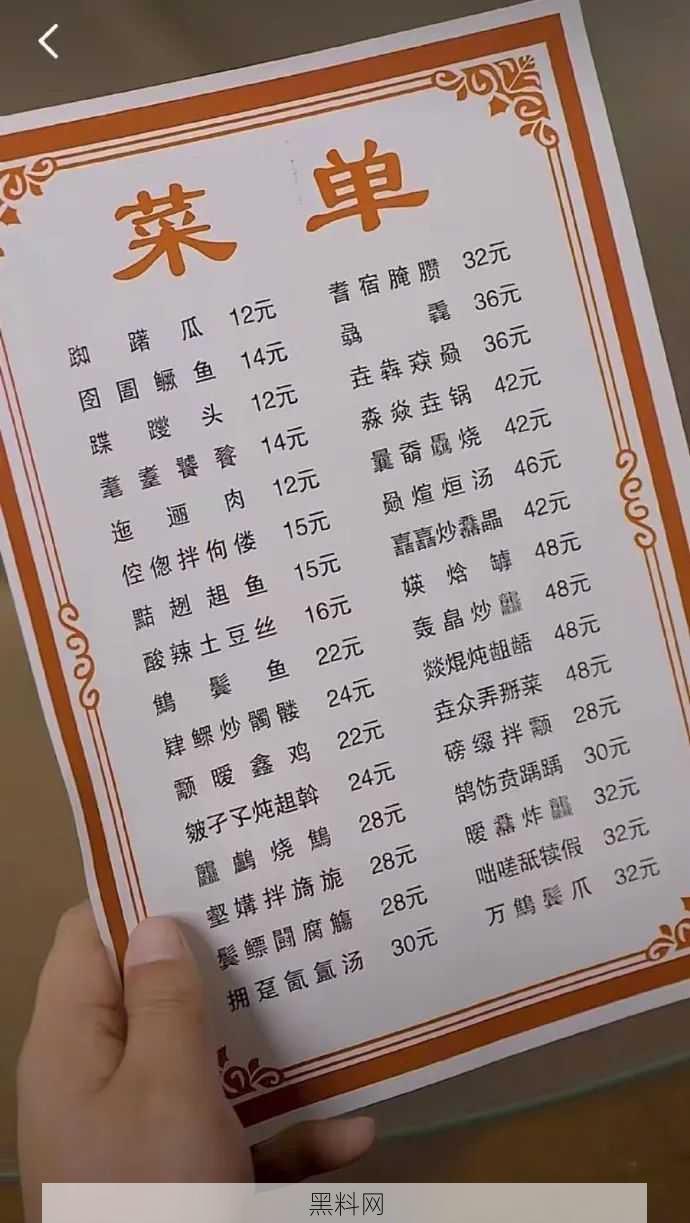 菜单
踟躇瓜 12元
囹圄鳜鱼 14元
蹀躞头 12元
耄耋饕餮 14元
迤逦肉 12元
倥偬拌佝偻 15元
黠趔趄鱼 15元
酸辣土豆丝 16元
鬓鱼 22元
肄鳏炒髑髅 24元
颥暧鑫鸡 22元
皴孑孓炖趄斡 24元
龘烧 28元
壑媾拌旖旎 28元
鬓鳔闘腐觞 28元
拥趸氤氲汤 30元
耆宿腌臜 32元
骉毳 36元
垚犇猋赑 36元
淼焱垚锅 42元
烧 42元
赑煊烜汤 46元
嚞嚞炒馫畾 42元
媖焓罅 48元
轰皛炒龘 48元
燚焜炖龃龉 48元
垚众弄掰菜 48元
磅缀拌颥 28元
鹄饬贲踽踽 30元
暧馫炸龘 32元
咄嗟舐犊假 32元
万鬓爪 32元
黑料网